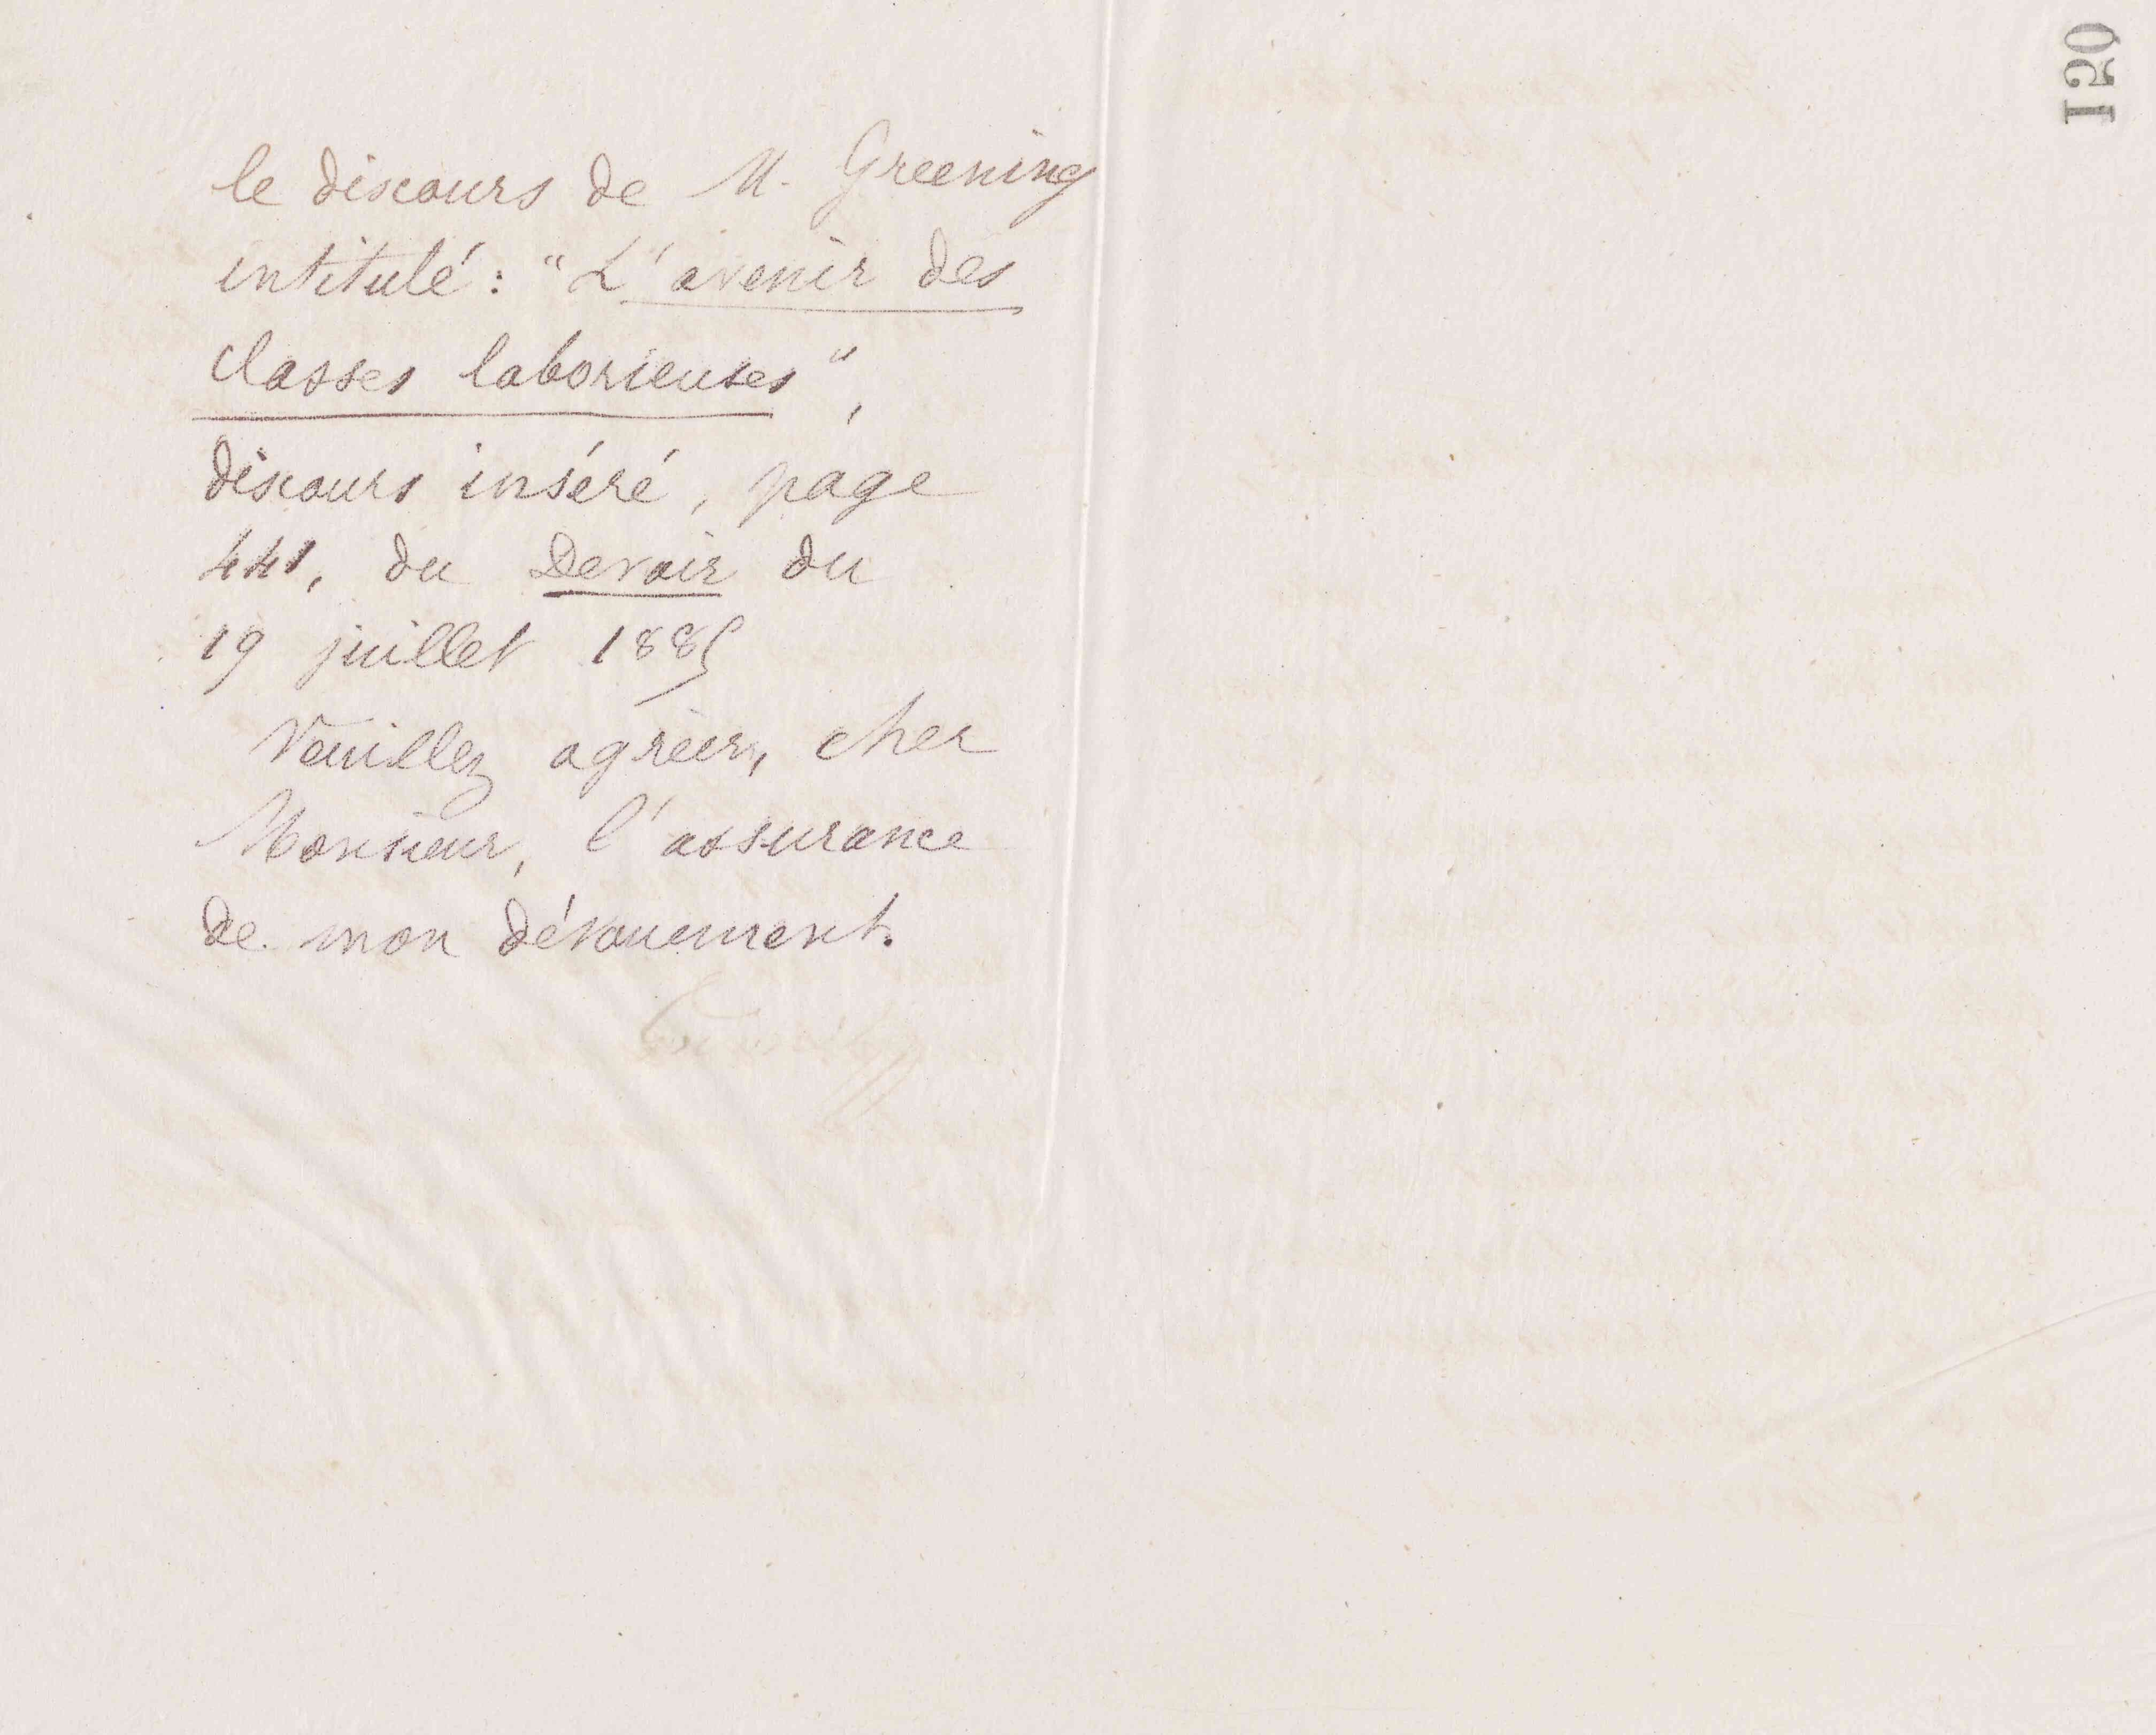 le discours de M. Greening
intitulé : "L'avenir des
classes laborieuses",
discours inséré, page
441, du Devoir du
19 juillet 1885
Veuillez agréer, cher
Monsieur, l'assurance
de mon dévouement.
150